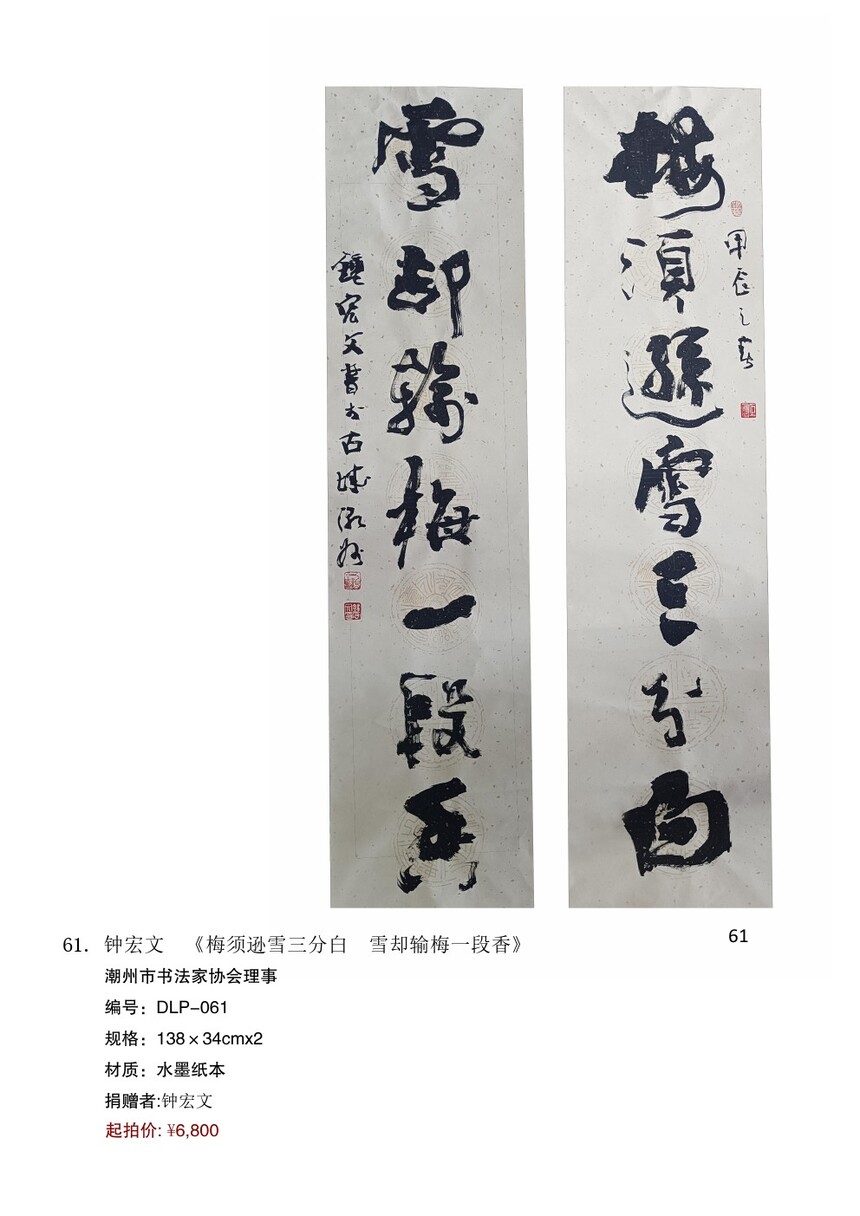 梅須遜雪三分白
甲辰之春
雪卻輸梅一段香
鍾宏文書於古城潮州
61
61. 钟宏文 《梅须逊雪三分白 雪却输梅一段香》
潮州市书法家协会理事
编号：DLP-061
规格：138×34cmx2
材质：水墨纸本
捐赠者:钟宏文
起拍价: ¥6,800